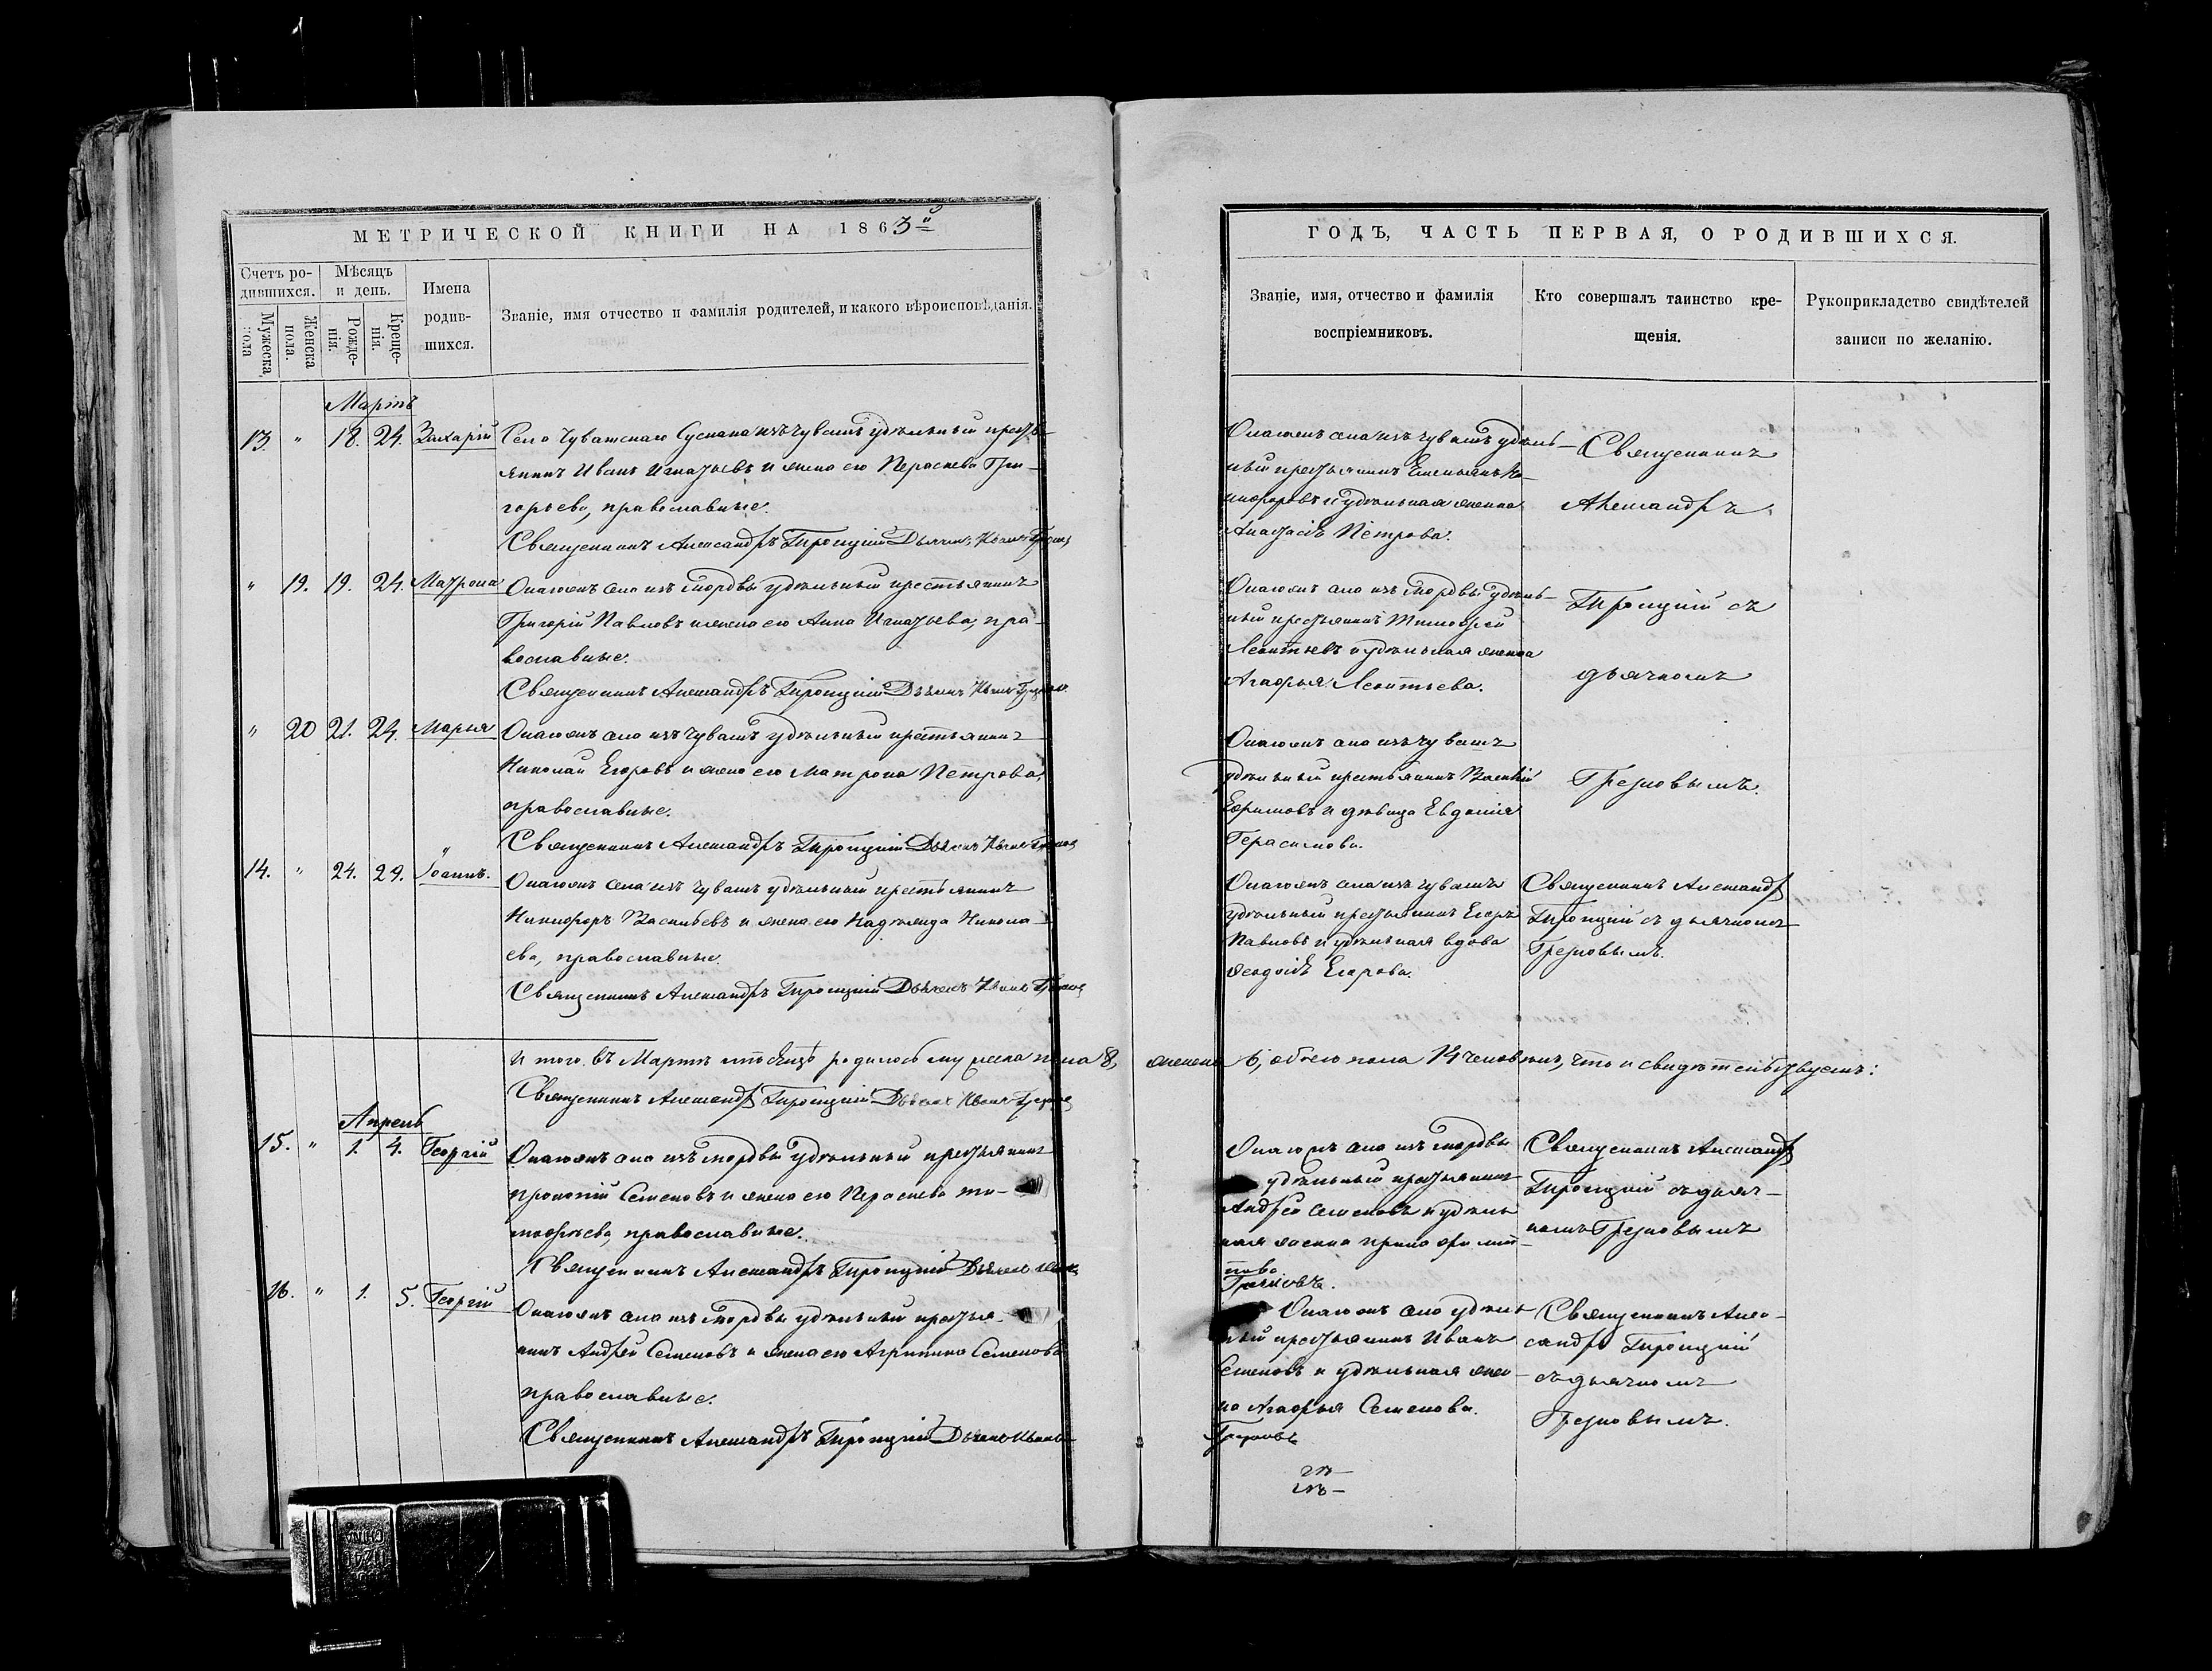 МЕТРИЧЕСКОЙ КНИГИ НА 1863й
Счетъ ро-
дившихся.
Мужеска пола
Женска пола.
Мѣсяцъ
и день.
Рожде-
нія.
Креще-
нія.
Имена
родив-
шихся.
Званіе, имя отчество и фамилія родителей, и какого вѣроисповѣданія.
Мартъ
13. " 18. 24. Захарій Село Чувашскаго Сускана изъ чувашъ удѣльный кресть-
янинъ Иванъ Игнатьевъ и жена его Пераскева Гри-
горьева, православные.
Священникъ Александръ Троицкій Дьячекъ
" 19. 19. 24. Матрона Онагожъ села изъ мордвы удѣльный крестьянинъ
Григорій Павловъ и жена его Анна Игнатьева, пра-
вославные.
Священникъ Александръ Троицкій Дьячекъ
" 20 21. 24. Марья Онагожъ села изъ чувашъ удѣльный крестьянинъ
Николай Егоровъ и жена его Матрона Петрова,
православные.
Священникъ Александръ Троицкій Дьячекъ
14. " 24. 29. Іоаннъ. Онагожъ села изъ чувашъ удѣльный крестьянинъ
Никифоръ Васильевъ и жена его Надежда Никола-
ева, православные.
Священникъ Александръ Троицкій Дьячекъ
И того въ Мартѣ мѣсяцѣ родилось мужеска пола 8, женска 6, обоего пола 14 человѣкъ, что и свидѣтельствуемъ:
Священникъ Александръ Троицкій Дьячекъ
Апрель
15. " 1. 4. Георгій Онагожъ села изъ мордвы удѣльный крестьянинъ
Прокопій Семеновъ и жена его Пераскева Ти-
мофѣева, православные.
Священникъ Александръ Троицкій Дьячекъ
16. " 1. 5. Георгій Онагожъ села изъ мордвы удѣльный крестья-
нинъ Андрей Семеновъ и жена его Агрипина Семенова
православные.
Священникъ Александръ Троицкій Дьячекъ
ГОДЪ, ЧАСТЬ ПЕРВАЯ, О РОДИВШИХСЯ.
Званіе, имя, отчество и фамилія
воспріемниковъ.
Кто совершалъ таинство кре-
щенія.
Рукоприкладство свидѣтелей
записи по желанію.
Онагожъ села изъ чувашъ удѣль-
ный крестьянинъ Емельянъ Ни-
кифоровъ и удѣльная женка
Анастасія Петрова.
Священникъ
Александръ
Онагожъ села изъ мордвы удѣль-
ный крестьянинъ Тимофей
Леонтьевъ и удѣльная женка
Агафья Леонтьева.
Троицкій съ
дьячкомъ
Онагожъ села изъ чувашъ
удѣльный крестьянинъ Василій
Ефимовъ и дѣвица Евдокія
Герасимова.
Грезновымъ.
Онагожъ села изъ чувашъ
удѣльный крестьянинъ Егоръ
Павловъ и удѣльная вдова
Ѳеодосія Егорова.
Священникъ Александръ
Троицкій съ дьячкомъ
Грезновымъ.
Онагожъ села изъ мордвы
удѣльный крестьянинъ
Андрей Семеновъ и удѣль
ная женка
Священникъ Александръ
Троицкій съ дьяч-
комъ Грезновымъ
Онагожъ села удѣль
ный крестьянинъ Иванъ
Семеновъ и удѣльная жен-
ка Агафья Семенова.
Грезновъ
Священникъ Алек-
сандръ Троицкій
съ дьячкомъ
Грезновымъ.